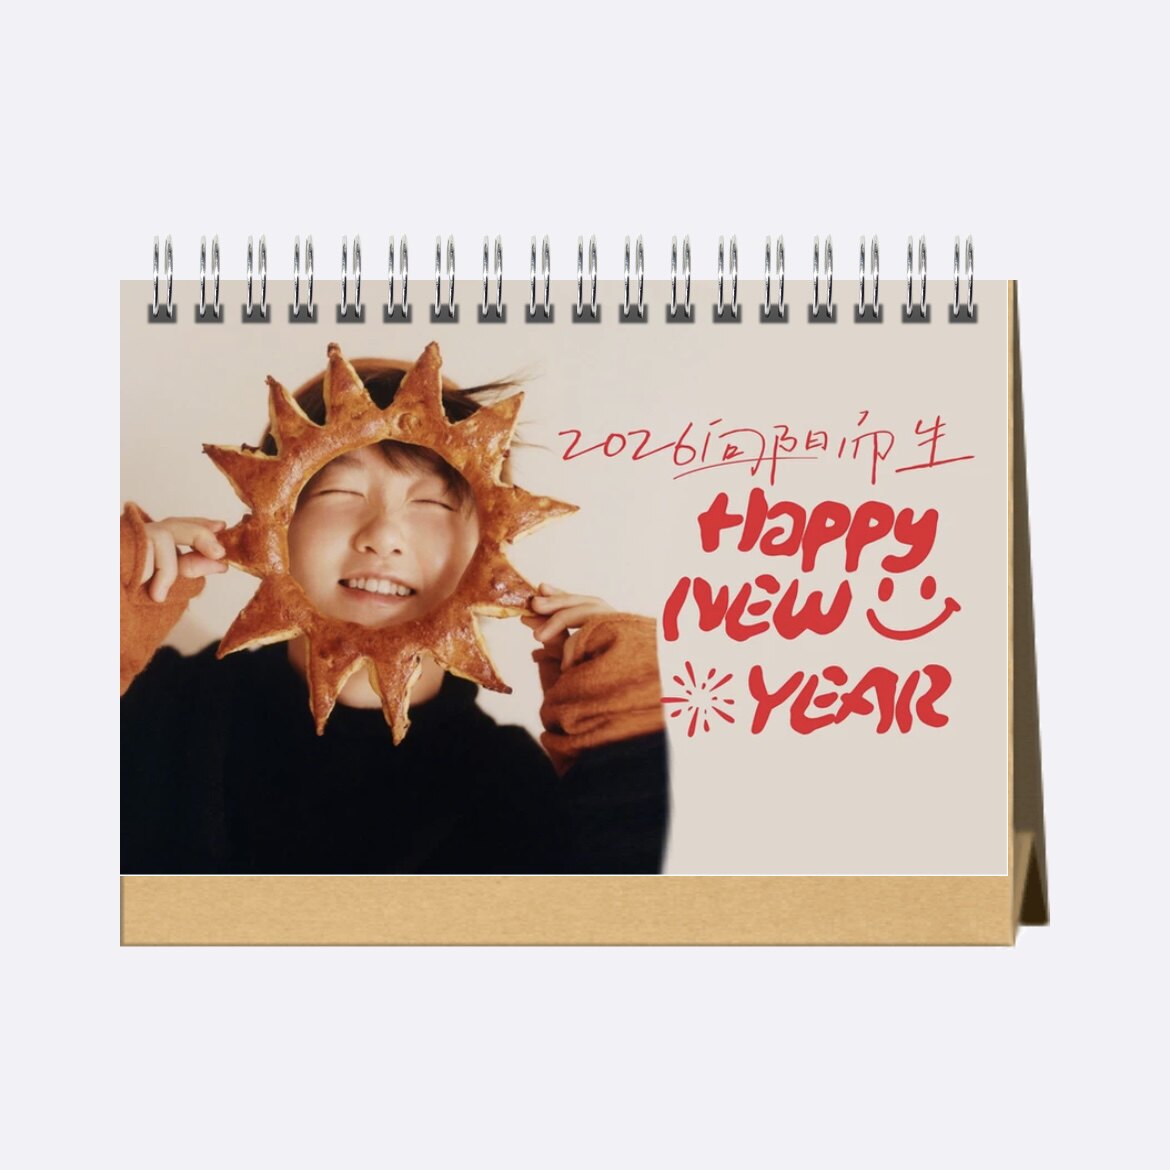 2026向阳而生
Happy
NEW
YEAR